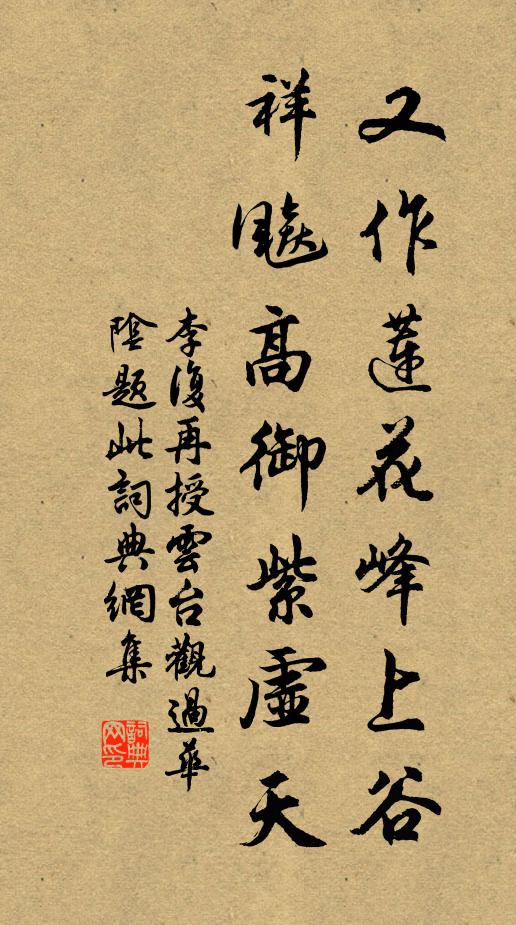 又作蓮花峰上谷
祥飈高御紫虛天
李復再授雲台觀過華
陰題此詞典網集
詞典
网印